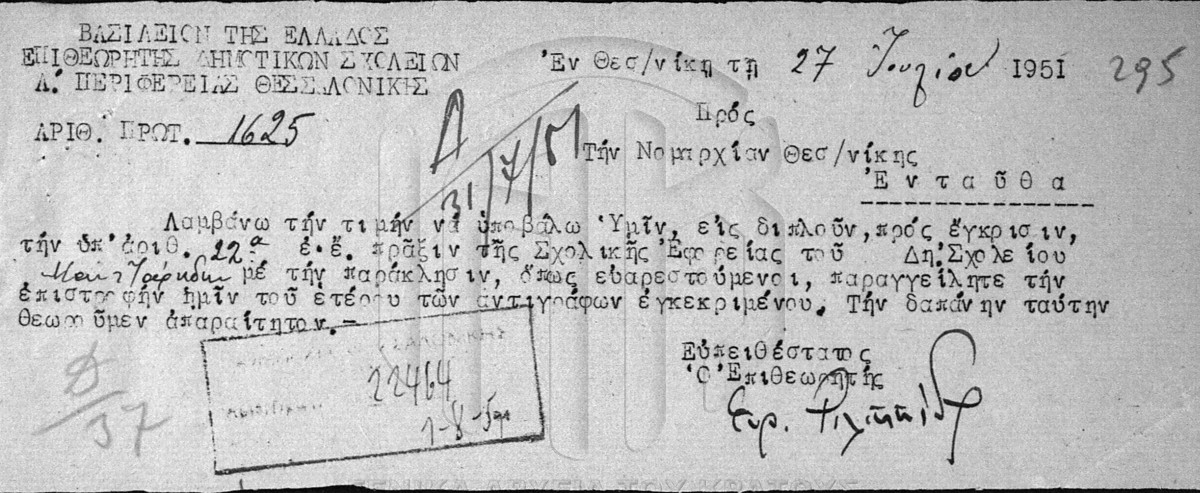 ΒΑΣΙΛΕΙΟΝ ΤΗΣ ΕΛΛΑΔΟΣ
ΕΠΙΘΕΩΡΗΤΗΣ ΔΗΜΟΤΙΚΩΝ ΣΧΟΛΕΙΩΝ
Α. ΠΕΡΙΦΕΡΕΙΑΣ ΘΕΣΣΑΛΟΝΙΚΗΣ
ΑΡΙΘ. ΠΡΩΤ. 1625
Ἐν Θεσ/νίκῃ τῇ 27 Ἰουλίου 1951
295
Δ
31/7/51
Πρός
Τήν Νομαρχίαν Θεσ/νίκης
Ἐνταῦθα
Λαμβάνω τήν τιμήν νά ὑποβάλω Ὑμῖν, εἰς διπλοῦν, πρός ἔγκρισιν,
τήν ὑπ' ἀριθ. 22α ἐ.ἔ. πρᾶξιν τῆς Σχολικῆς Ἐφορείας τοῦ Δη.Σχολείου
μέ τήν παράκλησιν, ὅπως εὐαρεστούμενοι, παραγγείλητε τήν
ἐπιστροφήν ἡμῖν τοῦ ἑτέρου τῶν ἀντιγράφων ἐγκεκριμένου. Τήν δαπάνην ταύτην
θεωροῦμεν ἀπαραίτητον.-
Εὐπειθέστατος
Ὁ Ἐπιθεωρητής
22464
1-8-51
Δ/37